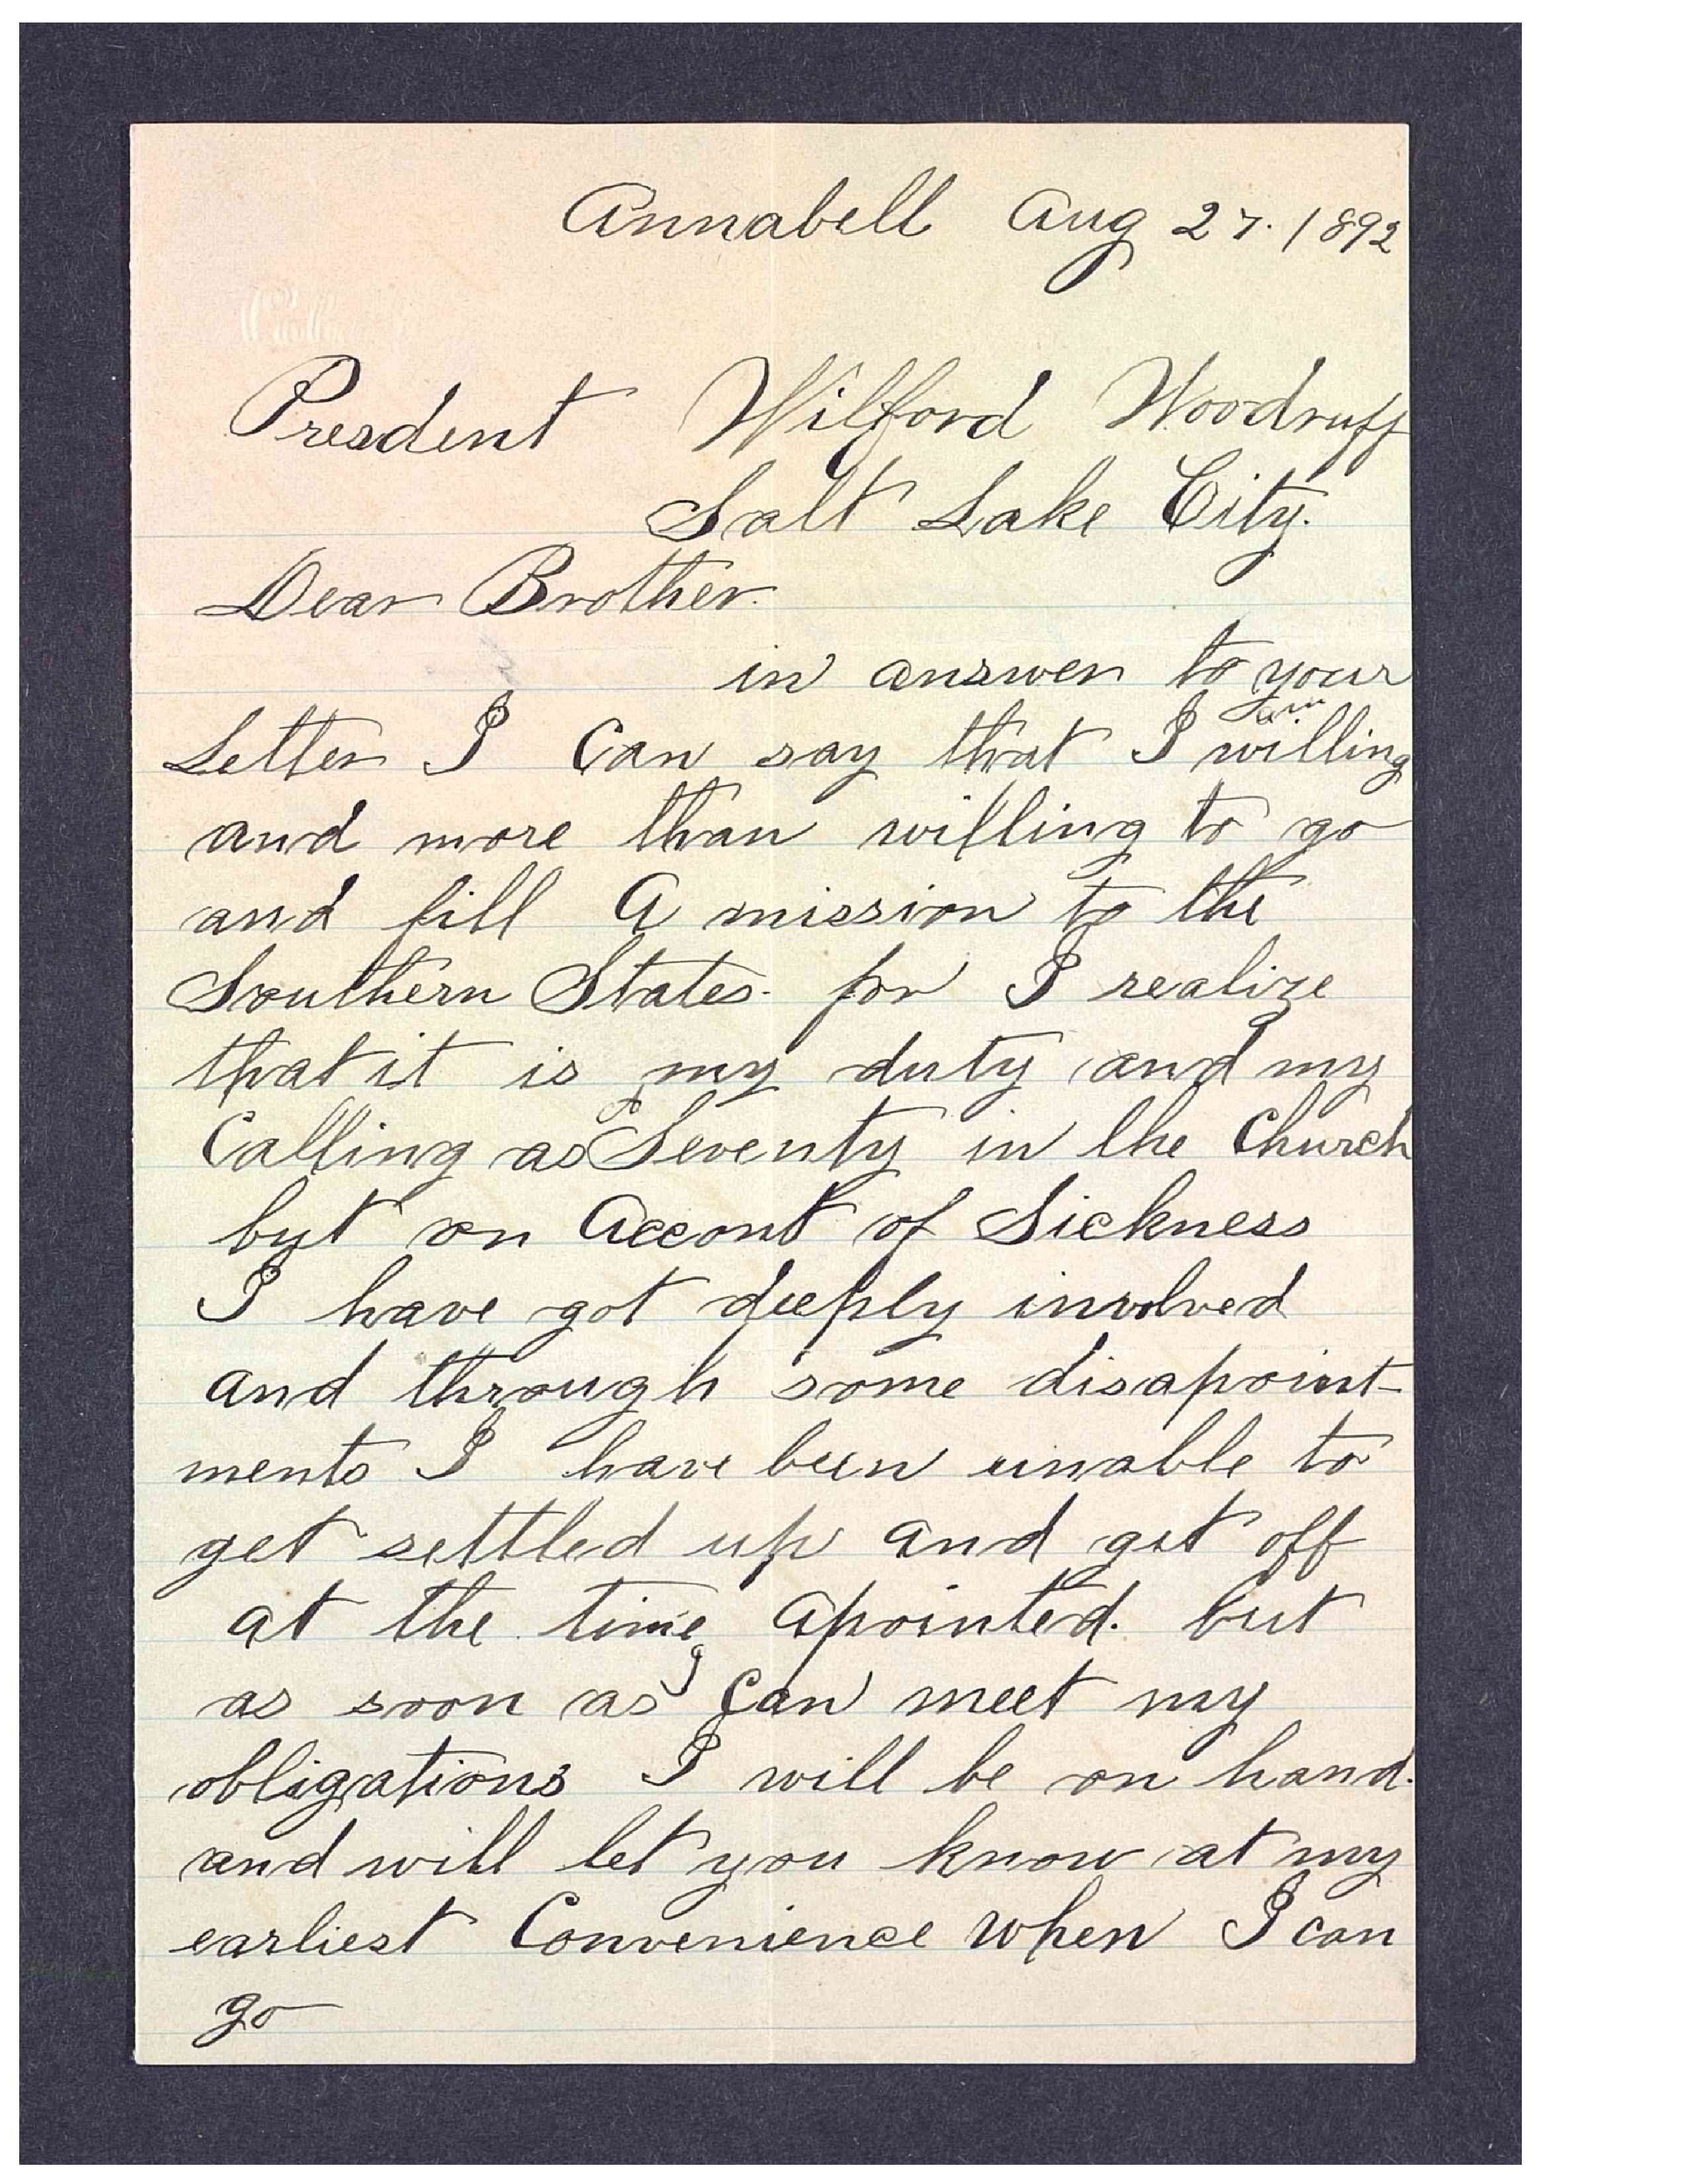 Annabell Aug 27. 1892
Presdent Wilford Woodruff
Salt Lake City.
Dear Brother.
in answer to your
Letter I Can say that I am willing
and more than willing to go
and fill A mission to the
Southern States. for I realize
that it is my duty and my
Calling as a Seventy in the Church
but on Accont of Sickness
I have got deeply involved
and through some disapoint-
ments I have been unable to
get settled up and get off
at the time apointed. but
as soon as I Can meet my
obligations I will be on hand.
and will let you know at my
earliest Convenience when I can
go